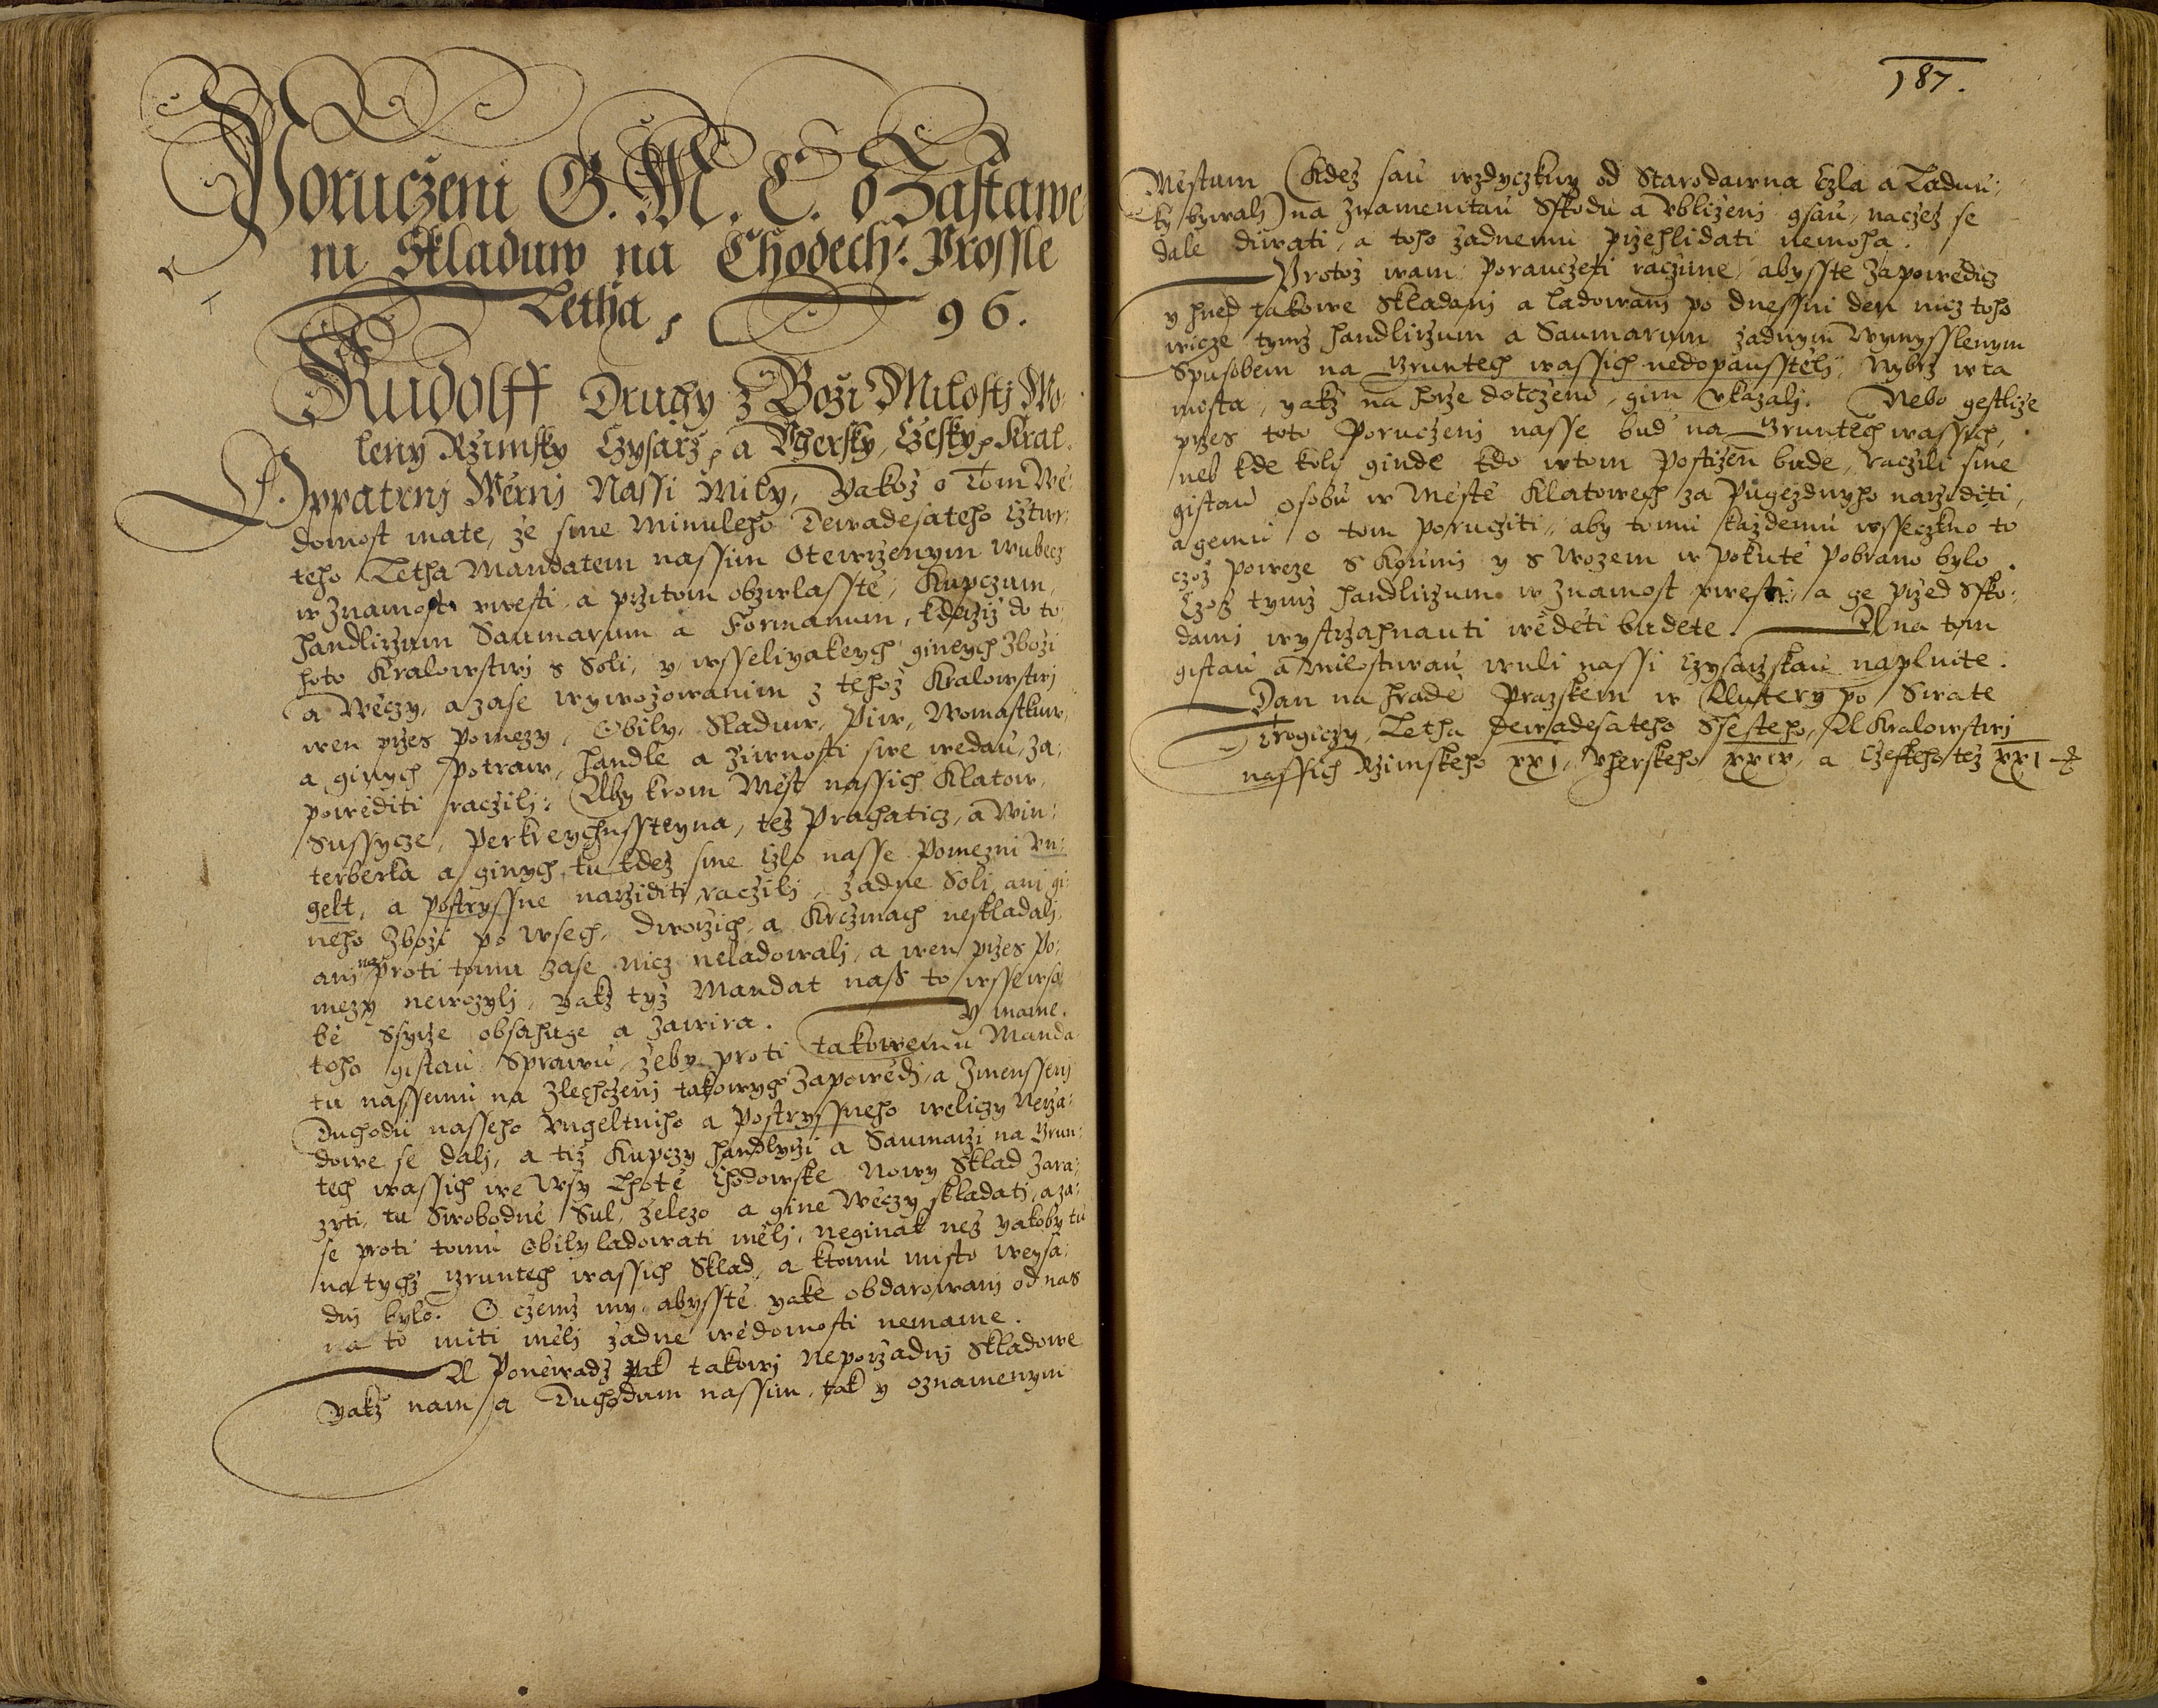 Poruczeni G. M. C. o Zastawe
ni Skladuw na Chodech: Prossle
Letha, 96.
Rudolff Druhy z Boži Milosti Wo-
leny Rzimsky Czysarz, a Vhersky, Czesky, Kral.
Oppatrnj Wěrnj Nassi Mily, Yakož o Tom Wě:
domost mate, že sme Minuleho Dewadesateho Cžtwr:
teho Letha Mandatem nassim Otewrzenym wubecz
w znamost vwesti, a przitom obzwlasste, Kupczum,
handlirzum Saumarum a Formanum, kderziž do to:
hoto Kralowstwj s Soli, y wsseliyakych ginych Zboži
a Wěczy, a zase wywožowanim z tehož Kralowstwj
wen przes Pomezy, Obily, Sladuw, Piw, Womastkuw,
a ginych Potraw, handle a žiwnosti swe wedau, Za:
powěditi raczilj: Aby krom Měst nassich Klatow,
Sussycze, Perkreychnssteyna, tež Prachaticz, a Win:
terberka a ginych, tu kdež sme Czlo nasse Pomezni Vn:
gelt, a Postryssne narziditi raczilj, žadne Soli, anj gi:
neho Zboži po Wsech, Dworzich, a Krczmach neskladalj,
anj naproti tomu Zase nicz neladowalj, a wen przes Po:
mezy newozylj, yakž tyž Mandat naß to wssewso:
bě Ssyrze obsahuge a zawira. Y mame.
toho gistau Sprawu, žeby proti takowemu Manda
tu nassemu na Zlechczenj takowych Zapowědi, a Zmenssenj
Duchodu nasseho Vngeltniho a Postryssneho weliczy Nerža:
dowe se dalj, a tiž Kupczy handlyrzi a Saumarzi na Grun:
tech wassich we Wsy Lhotě Chodowske Nowy Sklad Zara:
zyti, tu Swobodně Sul, železo a gine Wěczy skladati, a za:
se proti tomu Obily ladowati mělj, neginak než yakoby tu
na tychž Gruntech wassich Sklad, a ktomu misto weysa:
dnj bylo. O czemž my, abysste yake obdarowanj od nas
na to miti mělj žadne wědomosti nemame.
A Poněwadž pak takowj Neporžadnj Skladowe
yakž nam a Duchodum nassim, tak y oznamenym
187.
Městum (kdež sau wzdyczky od Starodawna Czla a Ladun:
ky bywalj) na Znamenitau Sskodu a Vbliženj gsau, naczež se
dale diwati, a toho žadnemu przehlidati nemoha.
Protož wam Porauczeti raczime, abysste Zapowědicz
y hned takowe Skladanj a ladowanj po dnessni den nicz toho
wicze tymž handlirzum a Saumarum žadnym Wymysslenym
Spusobem na Gruntech wassich nedopausstělj, Nybrž wta
mista, yakž na horze dotczeno, gim vkazalj. Nebo gestliže
przes toto Poruczenj nasse bud na Gruntech wassich,
neb kde kolj ginde kdo wtom Postižen bude, raczili sme
gistau Osobu w Městě Klatowech za Pugezdnyho narziditi,
a gemu o tom Porucziti, aby tomu každemu wsseczkno to
czož poweze s Konmi y s Wozem w Pokutě Pobrano bylo.
Czož tymž handlirzum w znamost vwesti, a ge przed Sško:
dami wystrzahnauti wěděti budete. A na tom
gistau a milostiwau wuli nassi Czysarzskau naplnite.
Dan na hradě Pražskem w Auttery po Swate
Trogiczy, Letha Dewadesateho Ssesteho, A Kralowstwj
nassich Rzimskeho XXI, Vherskeho XXIV, a Czeskeho tež XXI